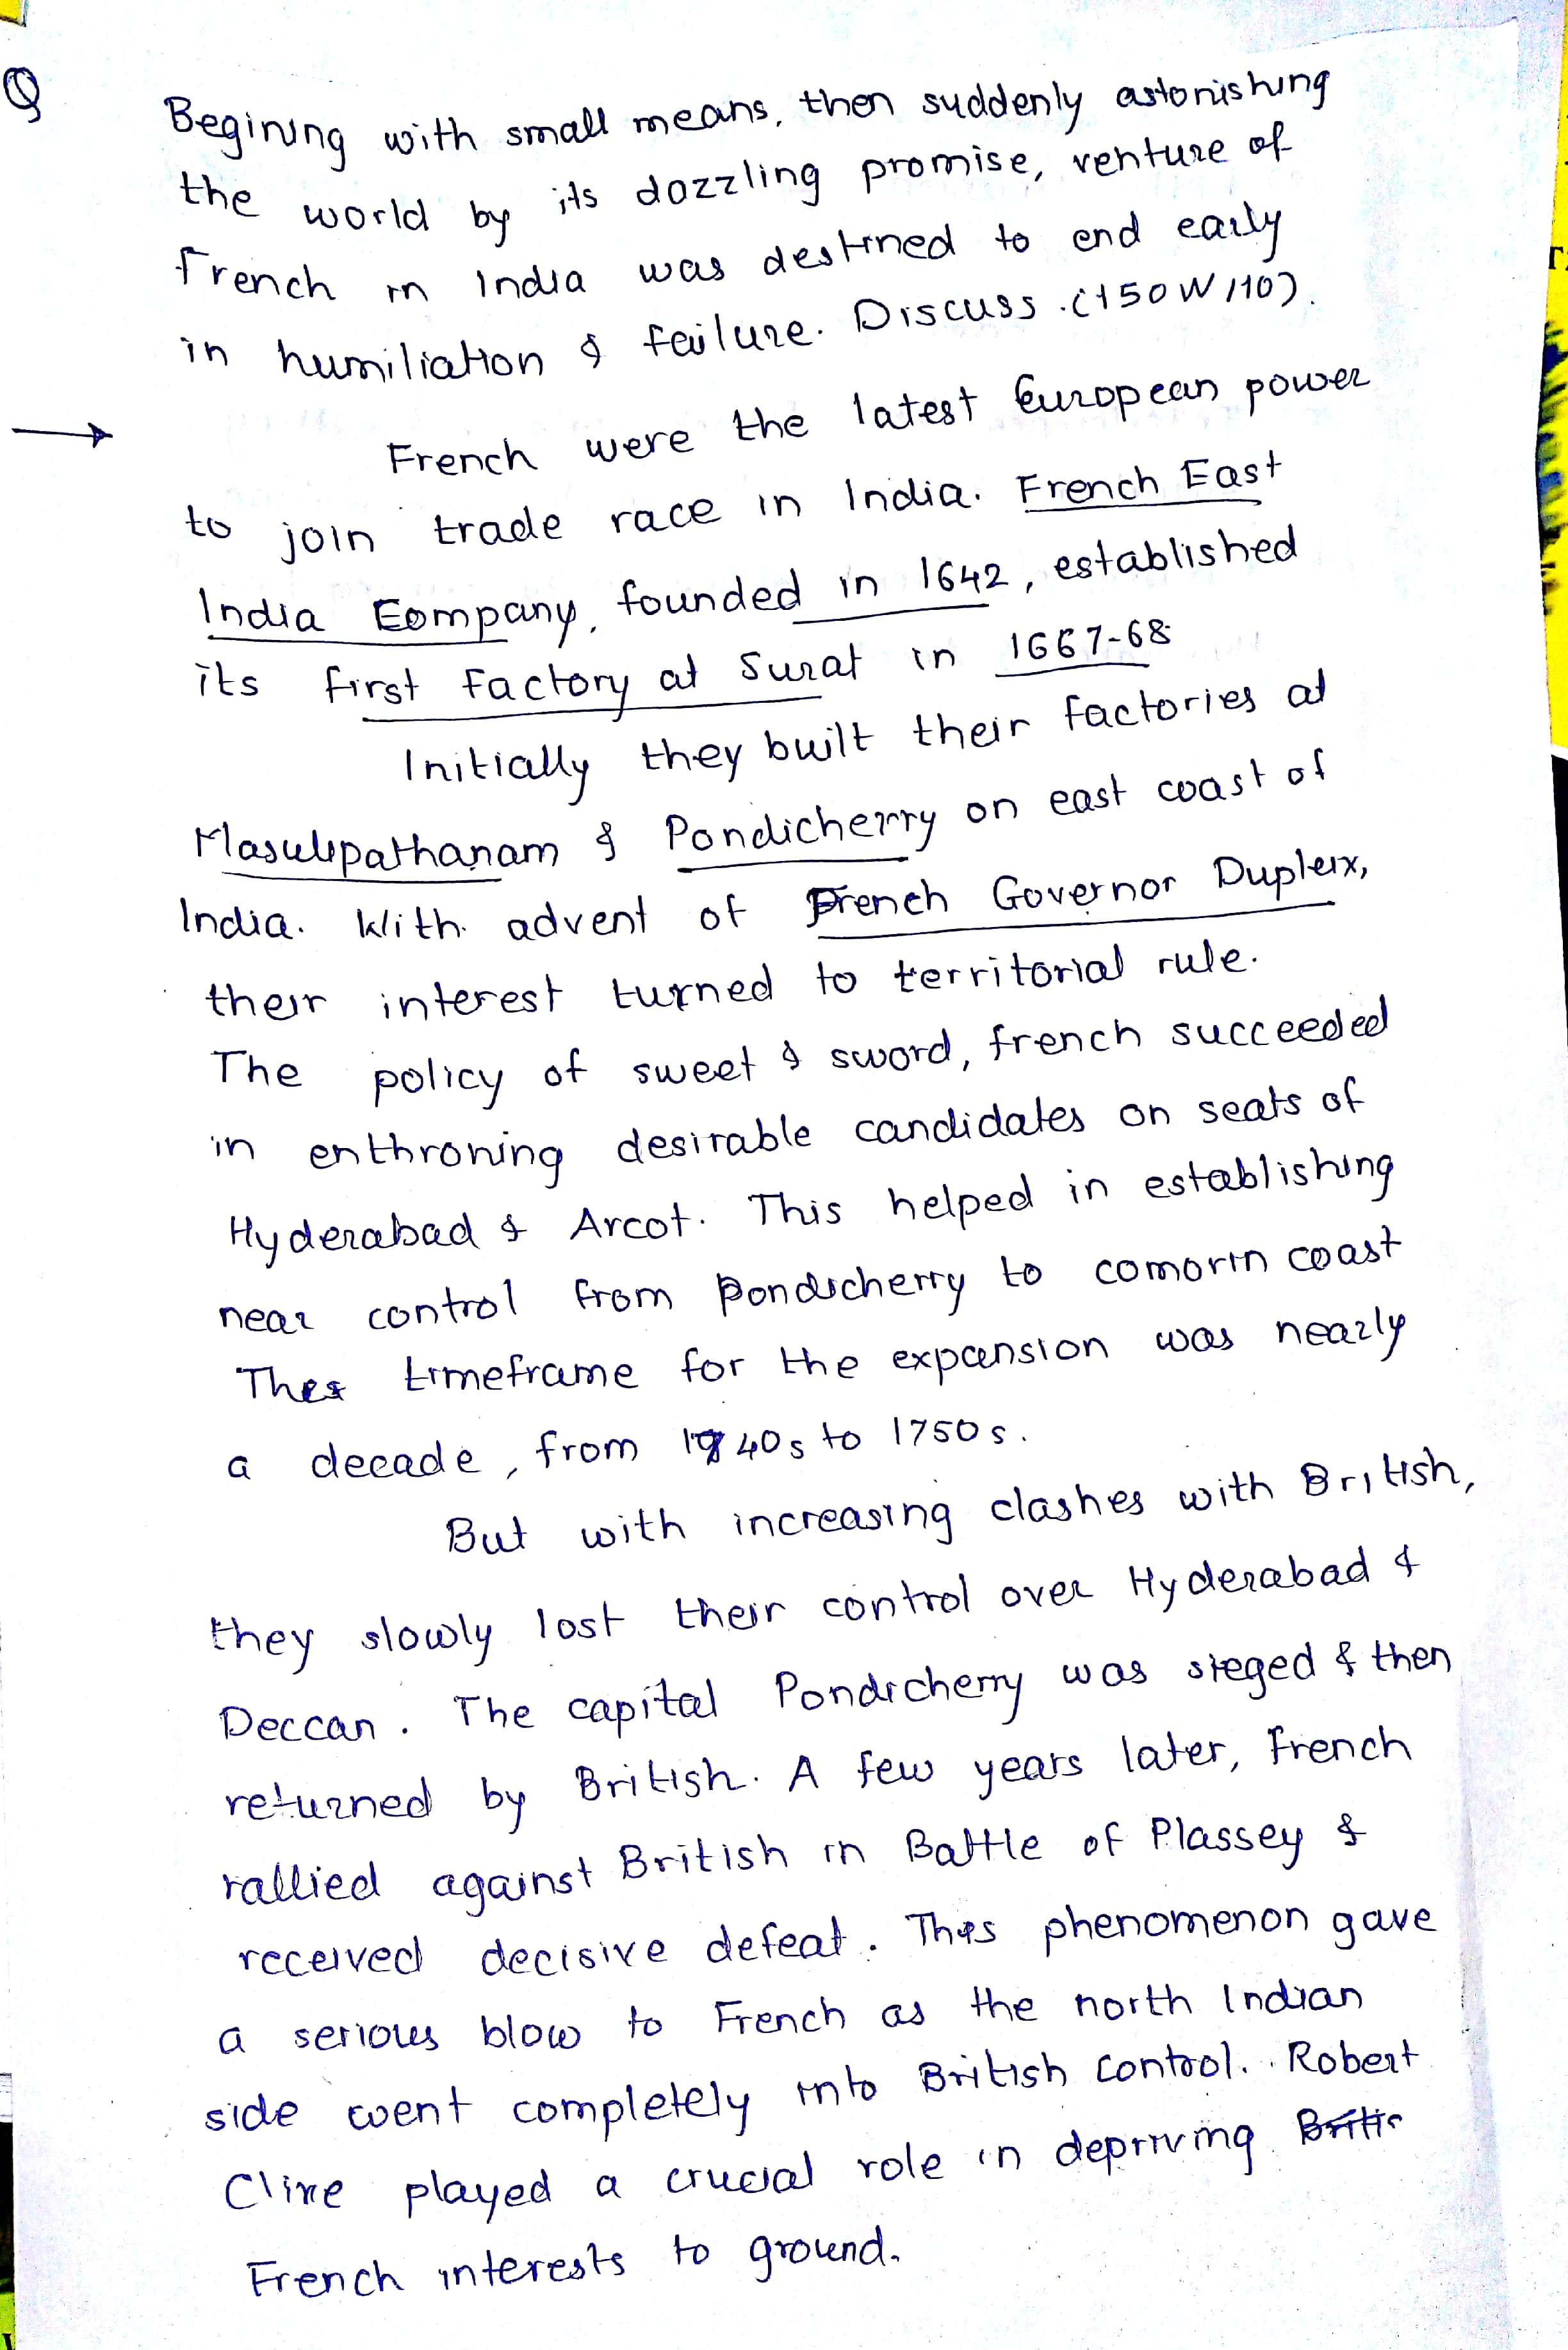 Q
Begining with small means, then suddenly astonishing
the world by its dazzling promise, venture of
French in India was destined to end early
in humiliation & failure. Discuss. (150W/10).
→ French were the latest European power
to join trade race in India. French East
India Company, founded in 1642, established
its first Factory at Surat in 1667-68
Initially they built their factories at
Masulipathanam & Pondicherry on east coast of
India. With advent of French Governor Dupleix,
their interest turned to territorial rule.
The policy of sweet & sword, french succeeded
in enthroning desirable candidates on seats of
Hyderabad & Arcot. This helped in establishing
near control from Pondicherry to comorin coast
The timeframe for the expansion was nearly
a decade, from 1740s to 1750s.
But with increasing clashes with British,
they slowly lost their control over Hyderabad &
Deccan. The capital Pondicherry was sieged & then
returned by British. A few years later, French
rallied against British in Battle of Plassey &
received decisive defeat. This phenomenon gave
a serious blow to French as the north Indian
side went completely into British control. Robert
Clive played a crucial role in depriving
French interests to ground.